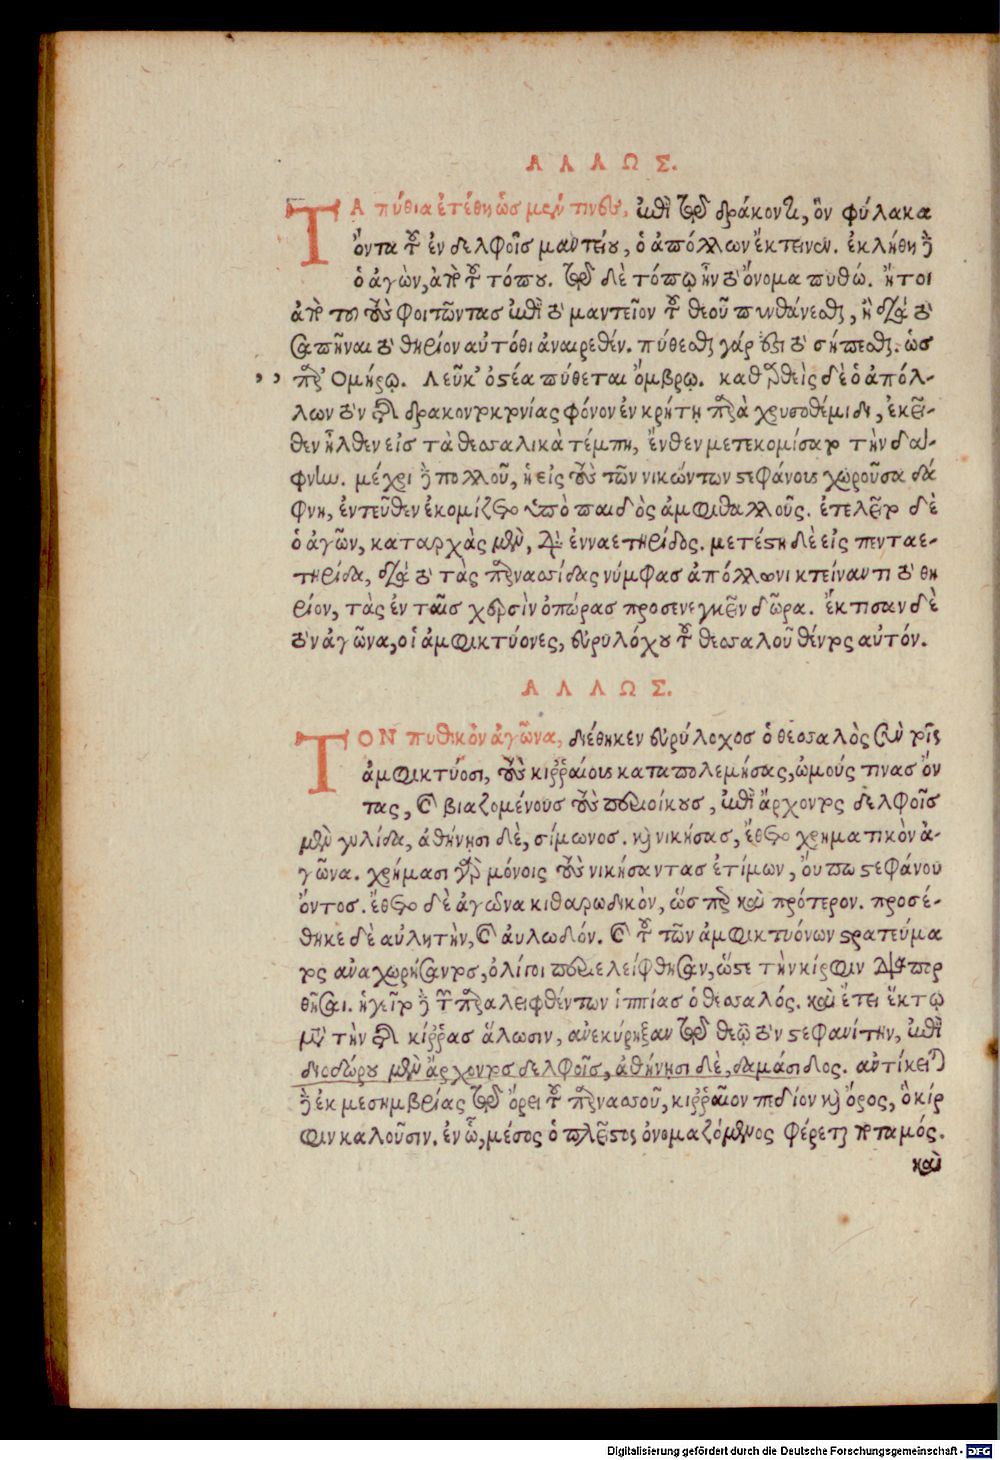 ΑΛΛΩΣ.
ΤΑ πύθια ἐτέθη ὡς μέν τινες, ἐπὶ τῷ δράκοντι, ὃν φύλακα
ὄντα τοῦ ἐν δελφοῖς μαντείου, ὁ ἀπόλλων ἔκτεινεν. ἐκλήθη δὲ
ὁ ἀγὼν, ἀπὸ τοῦ τόπου. τῷ δὲ τόπῳ ἦν τὸ ὄνομα πυθώ. ἤτοι
ἀπὸ τοῦ τοὺς φοιτῶντας ἐπὶ τὸ μαντεῖον τοῦ θεοῦ πυνθάνεσθαι, ἢ διὰ τὸ
σαπῆναι τὸ θηρίον αὐτόθι ἀναιρεθέν. πύθεσθαι γάρ ἐστι τὸ σήπεσθαι. ὡς
παρ' Ὁμήρῳ. Λεῦκ' ὀστέα πύθεται ὄμβρῳ. καθαρθεὶς δὲ ὁ ἀπόλ-
λων τὸν τῆς δρακοντοκτονίας φόνον ἐν κρήτῃ παρὰ χρυσοθέμιδι, ἐκεῖ-
θεν ἦλθεν εἰς τὰ θεσσαλικὰ τέμπη, ἔνθεν μετεκομίσατο τὴν δάφ-
φνην. μέχρι δὲ πολλοῦ, ἡ εἰς τοὺς τῶν νικώντων στεφάνους χωροῦσα δά
φνη, ἐντεῦθεν ἐκομίζετο ὑπὸ παιδὸς ἀμφιθαλλοῦς. ἐτελεῖτο δὲ
ὁ ἀγῶν, καταρχὰς μὲν, διὰ ἐνναετηρίδος. μετέστη δὲ εἰς πενταε-
τηρίδα, διὰ τὸ τὰς παρνασσίδας νύμφας ἀπόλλωνι κτείναντι τὸ θη
ρίον, τὰς ἐν ταῖς χερσὶν ὀπώρας προσενεγκεῖν δῶρα. ἔκτισαν δὲ
τὸν ἀγῶνα, οἱ ἀμφικτύονες, εὐρυλόχου τοῦ θεσσαλοῦ θέντος αὐτόν.
ΑΛΛΩΣ.
ΤΟΝ πυθικὸν ἀγῶνα, διέθηκεν εὐρύλοχος ὁ θεσσαλὸς σὺν τοῖς
ἀμφικτύοσι, τοὺς κιρραίους καταπολεμήσας, ὠμούς τινας ὄν
τας, καὶ βιαζομένους τοὺς περιοίκους, ἐπὶ ἄρχοντος δελφοῖς
μὲν γυλίδα, ἀθήνησι δὲ, σίμωνος. καὶ νικήσας, ἔθετο χρηματικὸν ἀ-
γῶνα. χρήμασι γὰρ μόνοις τοὺς νικήσαντας ἐτίμων, ὄυπω στεφάνου
ὄντος. ἔθετο δὲ ἀγῶνα κιθαρωδικὸν, ὥσπερ καὶ πρότερον. προσέ-
θηκε δὲ αὐλητὴν, καὶ ἀυλωδόν. καὶ τοῦ τῶν ἀμφικτυόνων στρατεύμα
τος αναχωρήσαντος, ὀλίγοι περιελείφθησαν, ὥστε τὴν κίρφιν διαπορ
θῆσαι. ἡγεῖτο δὲ τῶν παραλειφθέντων ἱππίας ὁ θεσσαλός. καὶ ἔτει ἕκτῳ
μετὰ τὴν τῆς κίρρας ἅλωσιν, ανεκύρηξαν τῷ θεῷ τὸν στεφανίτην, ἐπὶ
διοδώρου μὲν ἄρχοντος δελφοῖς, ἀθήνησι δὲ, δαμάσιδος. αντίκειται
δὲ ἐκ μεσημβρίας τῷ ὄρει τοῦ παρνασσοῦ, κιρραῖον πεδίον καὶ ὄρος, ὃ κίρ
φιν καλοῦσιν. ἐν ᾧ, μέσος ὁ πλεῖστος ὀνομαζόμενος φέρεται ποταμός.
καὶ
Digitalisierung gefördert durch die Deutsche Forschungsgemeinschaft - DFG